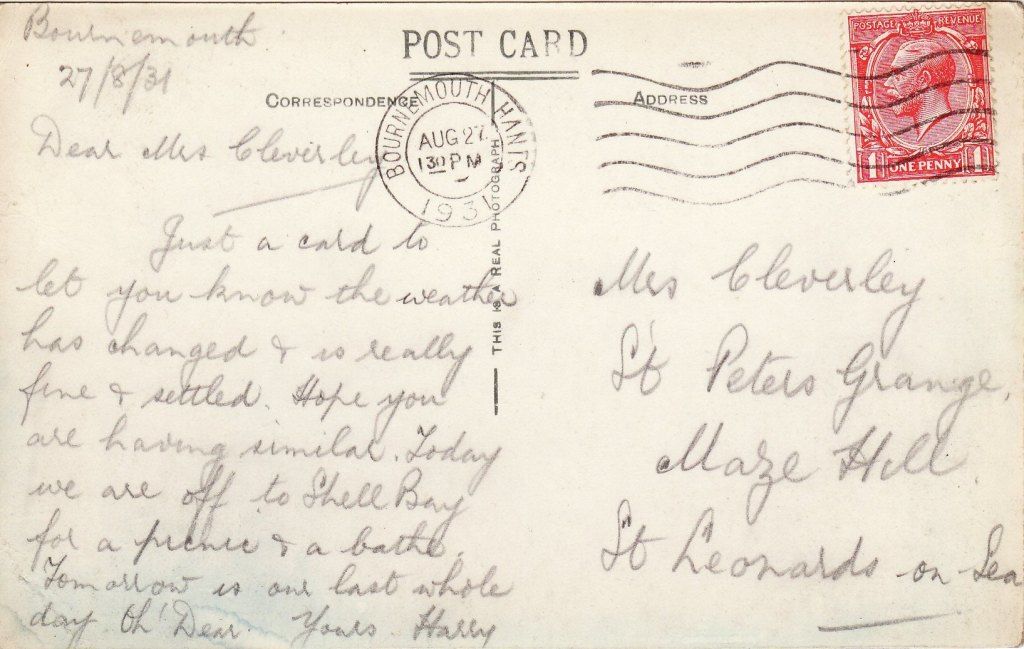 Bournemouth
27/8/31
POST CARD
CORRESPONDENCE
ADDRESS
BOURNEMOUTH HANTS
AUG 27
130 PM
1931
POSTAGE REVENUE
1 ONE PENNY 1
THIS IS A REAL PHOTOGRAPH
Dear Mrs Cleverley
Just a card to
let you know the weather
has changed & is really
fine & settled. Hope you
are having similar. Today
we are off to Shell Bay
for a picnic & a bathe.
Tomorrow is our last whole
day. Oh Dear. Yours Harry
Mrs Cleverley
St Peters Grange,
Maze Hill
St Leonards on Sea